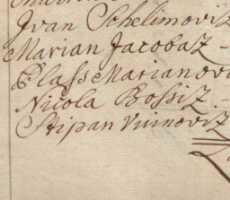 Ivan Schelimovitz
Marian Jacobatz
Blasse Marianovi
Nicola Bossitz
Stipan Vuinovitz